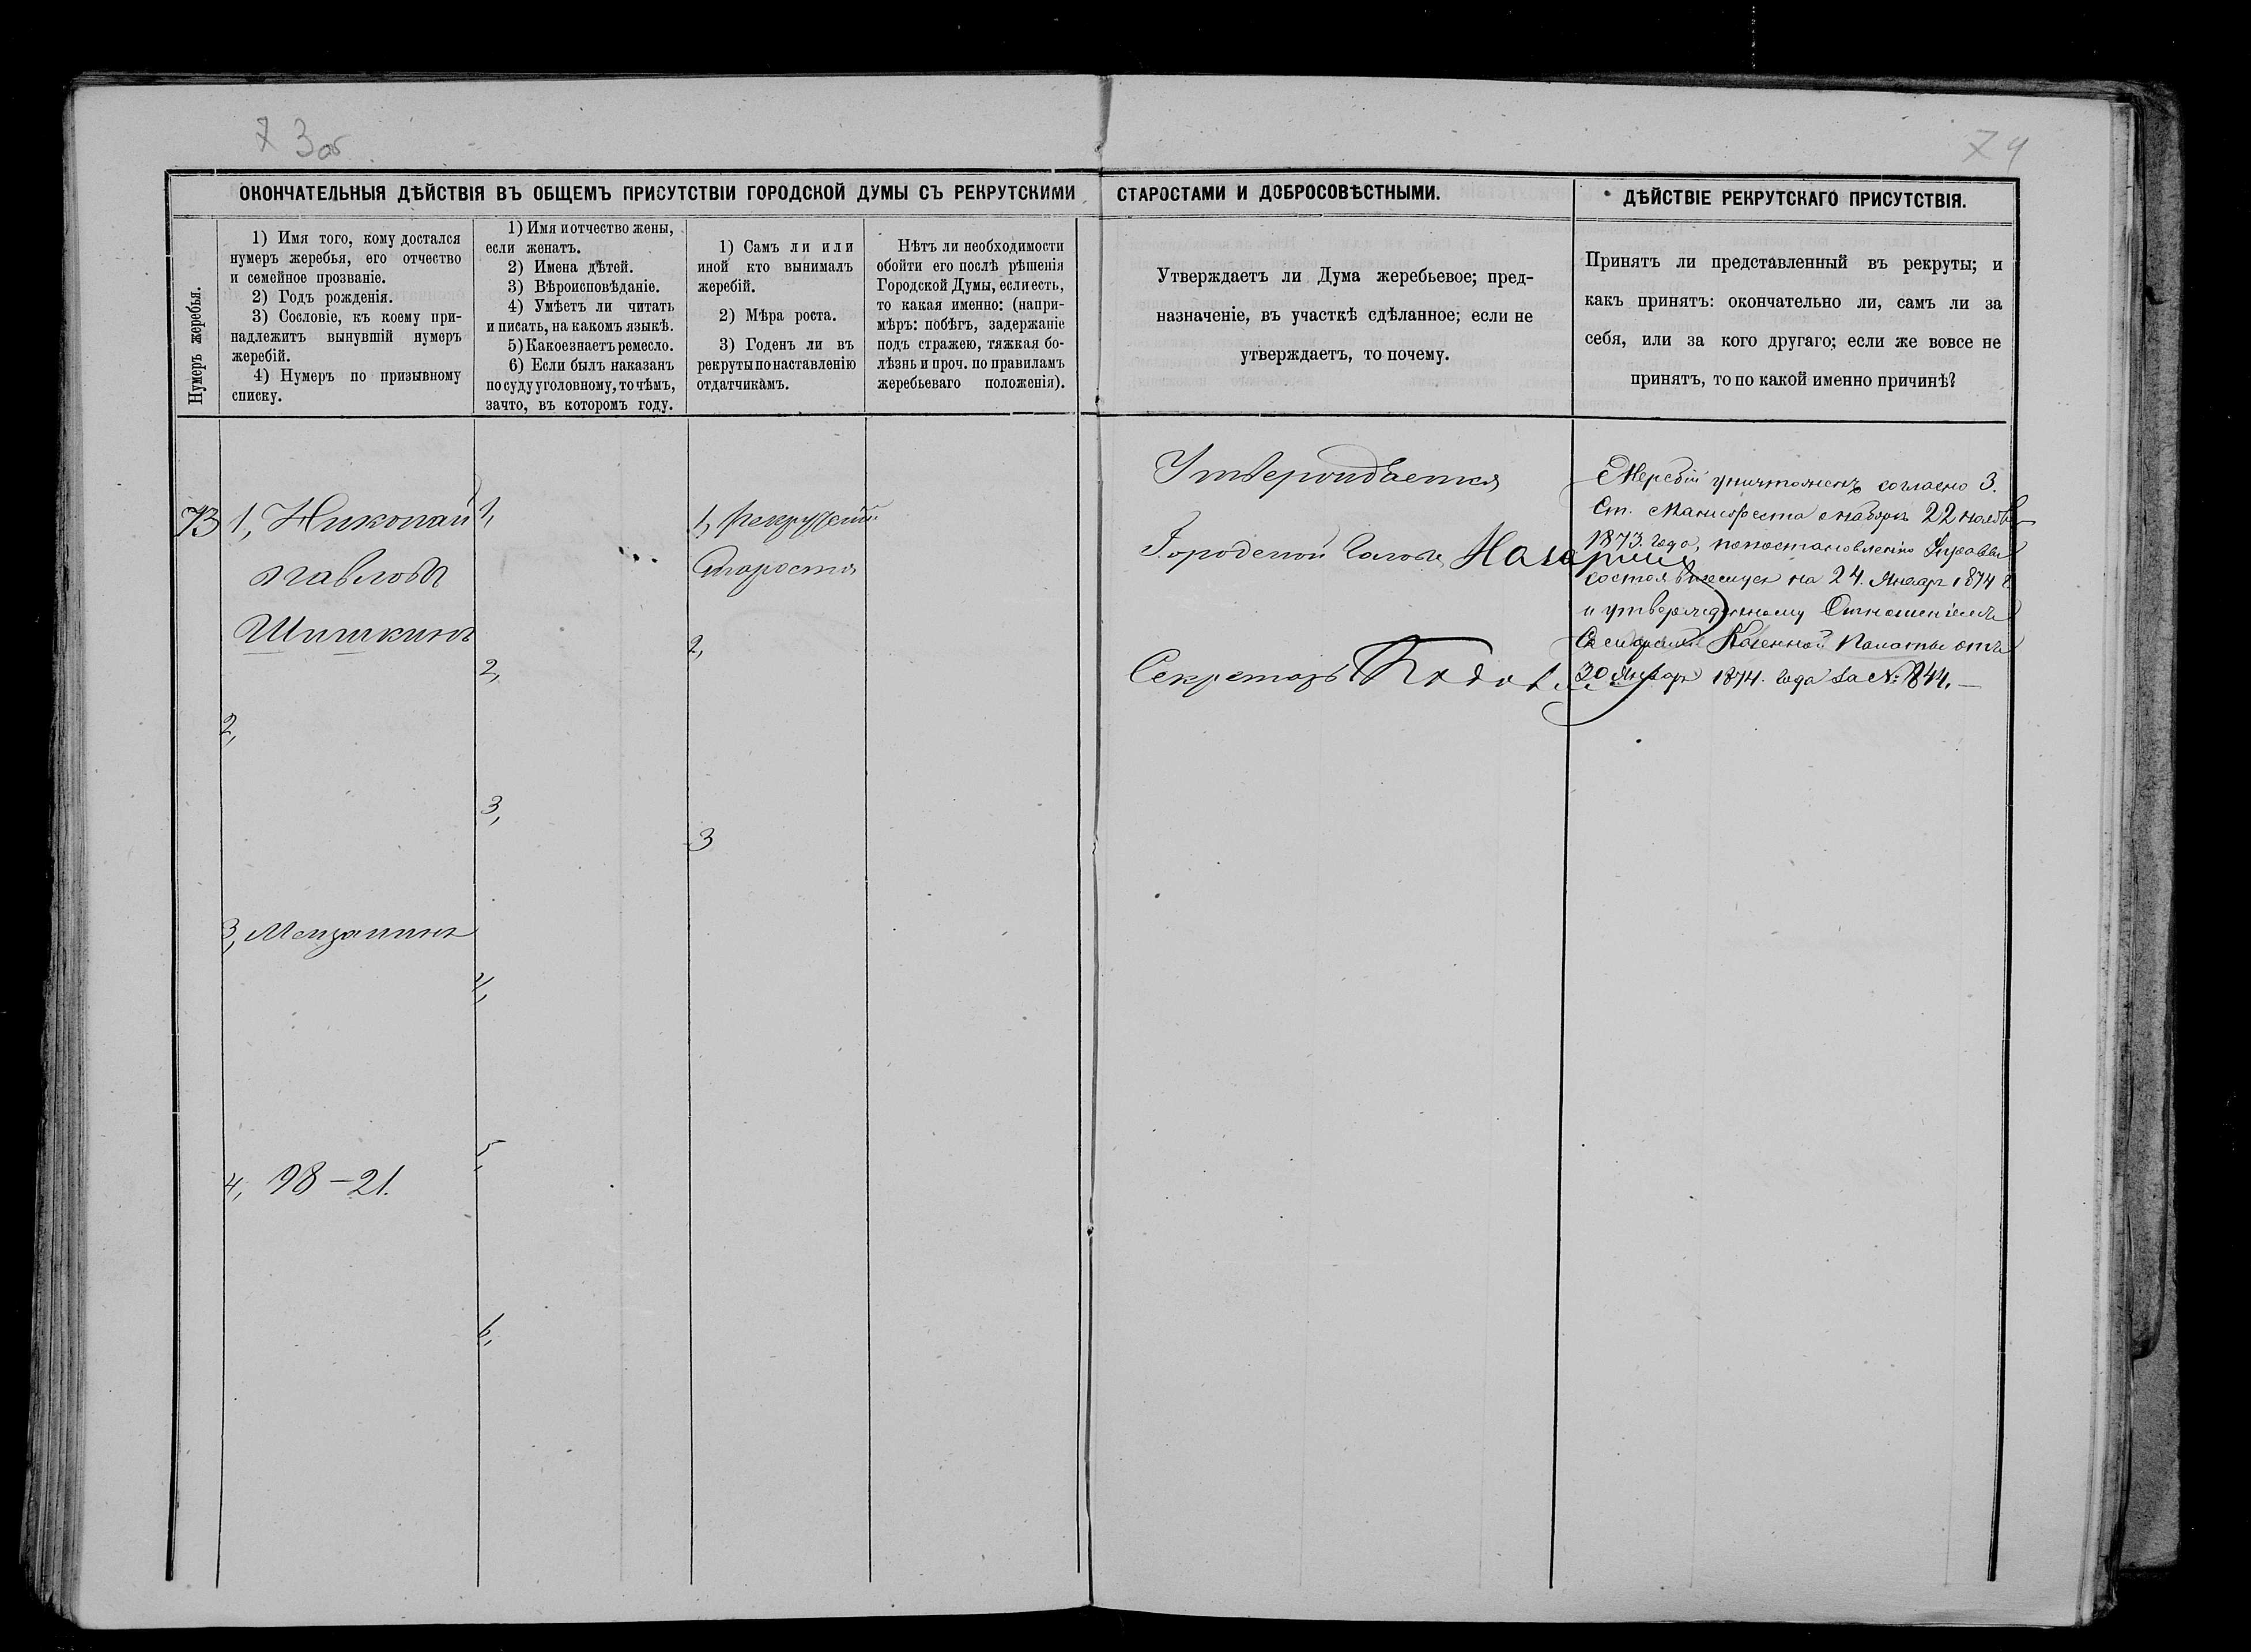 73об
74
ОКОНЧАТЕЛЬНЫЯ ДѢЙСТВІЯ ВЪ ОБЩЕМЪ ПРИСУТСТВІИ ГОРОДСКОЙ ДУМЫ СЪ РЕКРУТСКИМИ
СТАРОСТАМИ И ДОБРОСОВѢСТНЫМИ.
ДѢЙСТВІЕ РЕКРУТСКАГО ПРИСУТСТВІЯ.
Нумеръ жеребья.
1) Имя того, кому достался
нумеръ жеребья, его отчество
и семейное прозваніе.
2) Годъ рожденія.
3) Сословіе, къ коему при-
надлежитъ вынувшій нумеръ
жеребій.
4) Нумеръ по призывному
списку.
1) Имя и отчество жены,
если женатъ.
2) Имена дѣтей.
3) Вѣроисповѣданіе.
4) Умѣетъ ли читать
и писать, на какомъ языкѣ.
5) Какое знаетъ ремесло.
6) Если былъ наказанъ
по суду уголовному, то чѣмъ,
за что, въ которомъ году.
1) Самъ ли или
иной кто вынималъ
жеребій.
2) Мѣра роста.
3) Годенъ ли въ
рекруты по наставленію
отдатчикамъ.
Нѣтъ ли необходимости
обойти его послѣ рѣшенія
Городской Думы, если есть,
то какая именно: (напри-
мѣръ: побѣгъ, задержаніе
подъ стражею, тяжкая бо-
лѣзнь и проч. по правиламъ
жеребьеваго положенія).
Утверждаетъ ли Дума жеребьевое; пред-
назначеніе, въ участкѣ сдѣланное; если не
утверждаетъ, то почему.
Принятъ ли представленный въ рекруты; и
какъ принятъ: окончательно ли, самъ ли за
себя, или за кого другаго; если же вовсе не
принятъ, то по какой именно причинѣ?
73
1, Николай
Павловъ
Шишкинъ
2,
3, Мѣщанинъ
4, 98 – 21.
1,
2,
3,
4,
5,
6,
1, Рекрутскій
Староста
2,
3
Утверждается
Городской Голова
Секретарь
Жеребій уничтоженъ согласно 3.
Ст. Манифеста о наборѣ 22 Ноября
1873. года, по постановленію Управы
состоявшемуся на 24. Января 1874 г
и утвержденному Отношеніемъ
Казенной Палаты отъ
30 Января 1874. года за № 844. —